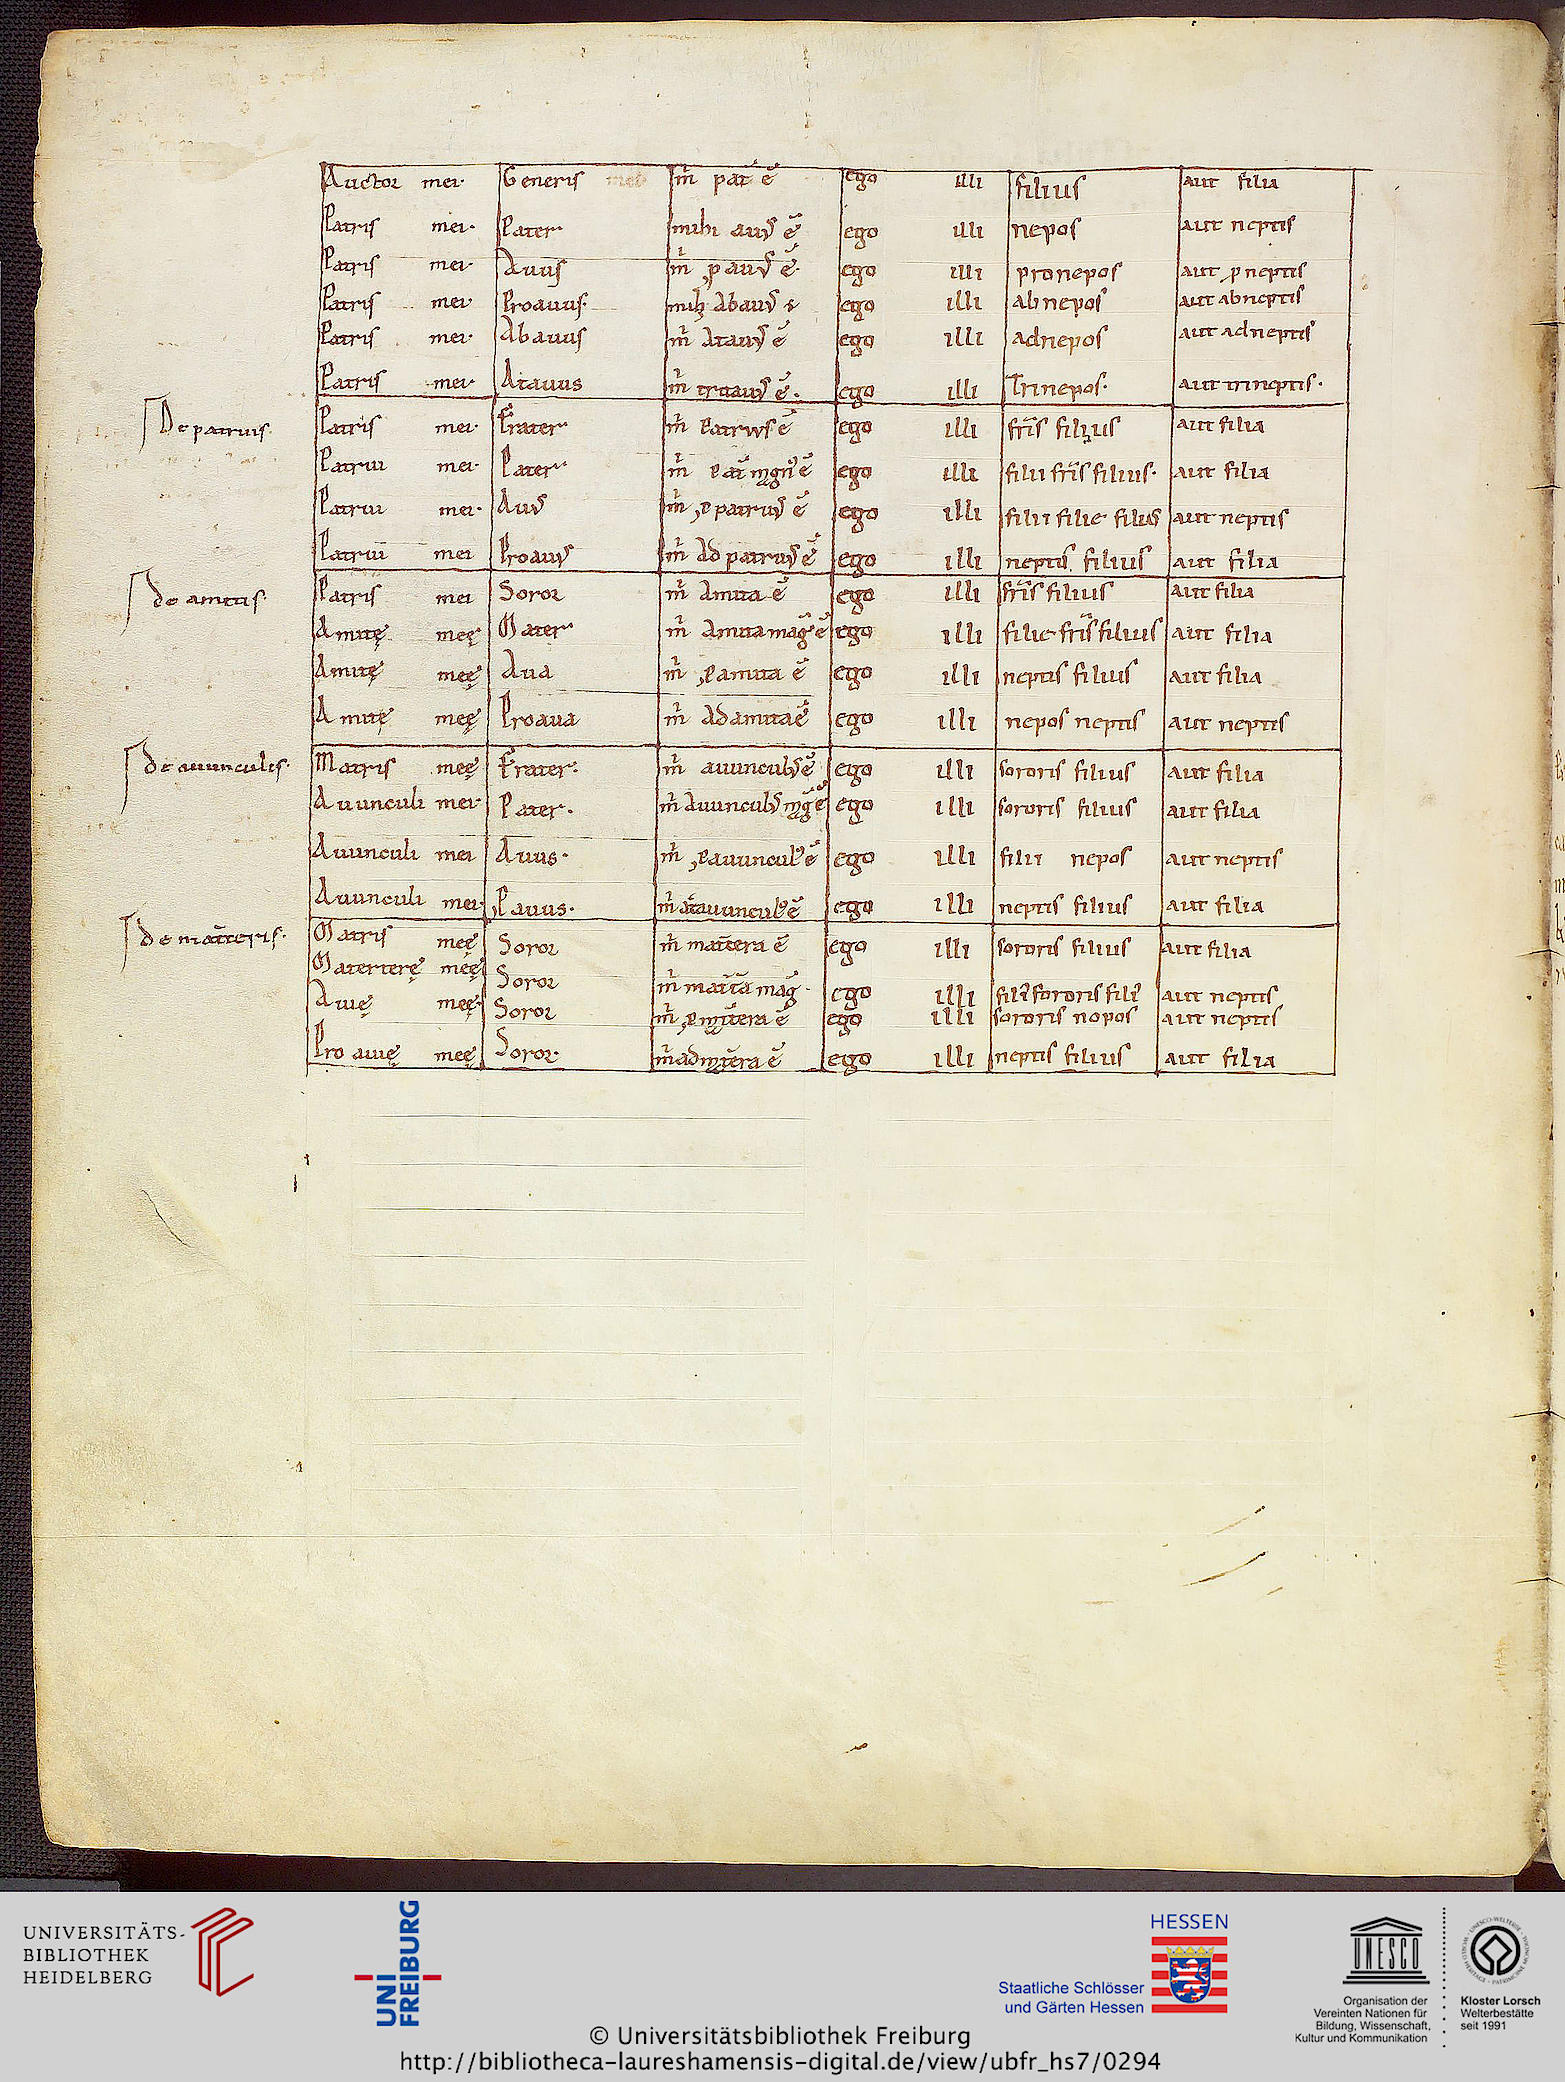 Auctor mei· Generis mei m̄ pat̄ ē ego illi filius aut filia
Patris mei· Pater· mihi auus ē ego illi nepos aut neptis
Patris mei· Auus m̄ ꝓauus ē· ego illi pronepos aut ꝓneptis
Patris mei· Proauus· mihi Abauus ē ego illi abnepos aut abneptis
Patris mei· Abauus m̄ Atauus ē ego illi adnepos aut adneptis
Patris mei· Atauus m̄ tritauus ē· ego illi Trinepos· aut trineptis·
De patruis· Patris mei· Frater· m̄ Patruus ē ego illi fr̄is filius aut filia
Patrui mei· Pater· m̄ pat̄ mgn' ē ego illi filii fr̄is filius· aut filia
Patrui mei· Auus m̄ ꝓpatruus ē ego illi filii filie filius aut neptis
Patrui mei Proauus m̄ Adpatruus ē ego illi neptis filius aut filia
de amitis· Patris mei Soror m̄ Amita ē ego illi fr̄is filius aut filia
Amitę meę Mater· m̄ Amita maḡ ē ego illi filie fr̄is filius aut filia
Amitę meę Aua m̄ ꝓamita ē ego illi neptis filius aut filia
Amitę meę Proaua m̄ Adamita ē ego illi nepos neptis aut neptis
de auunculis· Matris meę Frater· m̄ auunculus ē ego illi sororis filius aut filia
Auunculi mei· Pater· m̄ Auunculus mḡ ē ego illi sororis filius aut filia
Auunculi mei Auus· m̄ ꝓauuncul' ē ego illi filii nepos aut neptis
Auunculi mei· ꝓauus· m̄ at̄auuncul' ē ego illi neptis filius aut filia
de mat̄teris· Matris meę Soror m̄ mat̄tera ē ego illi sororis filius aut filia
Materterę meę Soror m̄ mat̄t̄a maḡ· ego illi fili sororis fili aut neptis
Auię meę· Soror m̄ ꝓmt̄tera ē ego illi sororis nopos aut neptis
Pro auię meę Soror· m̄ admt̄tera ē ego illi neptis filius aut filia
UNIVERSITÄTS-
BIBLIOTHEK
HEIDELBERG
UNI
FREIBURG
HESSEN
Staatliche Schlösser
und Gärten Hessen
UNESCO
Organisation der
Vereinten Nationen für
Bildung, Wissenschaft,
Kultur und Kommunikation
Kloster Lorsch
Welterbestätte
seit 1991
© Universitätsbibliothek Freiburg
http://bibliotheca-laureshamensis-digital.de/view/ubfr_hs7/0294